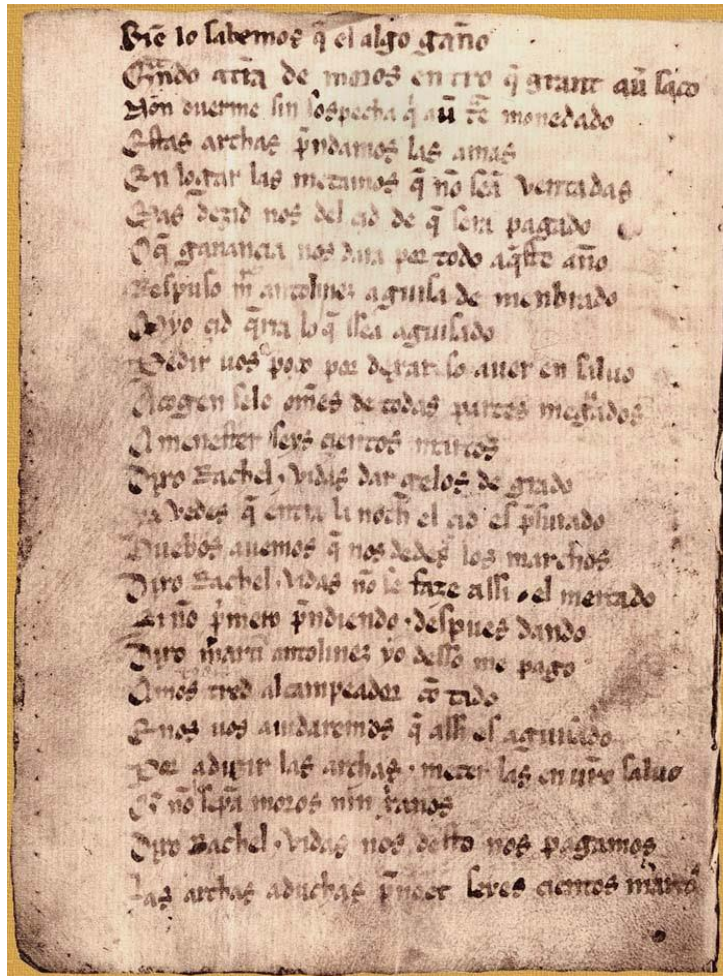 Biẽ lo sabemos q̃ el algo gaño
Q̃ndo a tr̃ra de moros entro q̃ grant au̅ saco
Non duerme sin sospecha q̃ au̅ tr̃e monedado
Estas archas p̃ndamos las amas
En logar las metamos q̃ nõ seã ventadas
Mas dezid nos del çid de q̃ sera pagado
O q̃ ganançia nos dara por todo aq̃ste año
Respuso mr̃ antolinez aguisa de menbrado
Myo çid q̃rra lo q̃ ssea aguisado
Pedir uos poco por dexar so auer en saluo
Acogen sele om̃es de todas partes meguados
A menester seys çientos marcos
Dixo Rachel ⁊ vidas dar gelos de grado
Ya vedes q̃ entra la noch el çid es p̃surado
Huebos auemos q̃ nos dedes los marchos
Dixo Rachel ⁊ vidas nõ se faze assi el mercado
Si nõ p̃mero p̃ndiendo ⁊ despues dando
Dixo martĩ antolinez yo desso me pago
Amos tred al campeador cõtado
E nos uos aiudaremos q̃ assi es aguisado
Por aduzir las archas ⁊ meter las en ur̃o saluo
Q̃ nõ sepã moros nin xr̃anos
Dixo Rachel ⁊ vidas nos desto nos pagamos
Las archas aduchas p̃ndet seyes çientos marcos